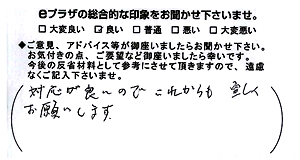 eプラザの総合的な印象をお聞かせ下さいませ。
□大変良い ☑良い □普通 □悪い □大変悪い
◆ご意見、アドバイス等が御座いましたらお聞かせ下さい。
お気付きの点、ご要望など御座いましたら幸いです。
今後の反省材料として参考にさせて頂きますので、遠慮
なくご記入下さいませ。
対応が良いので これからも 宜しく
お願いします